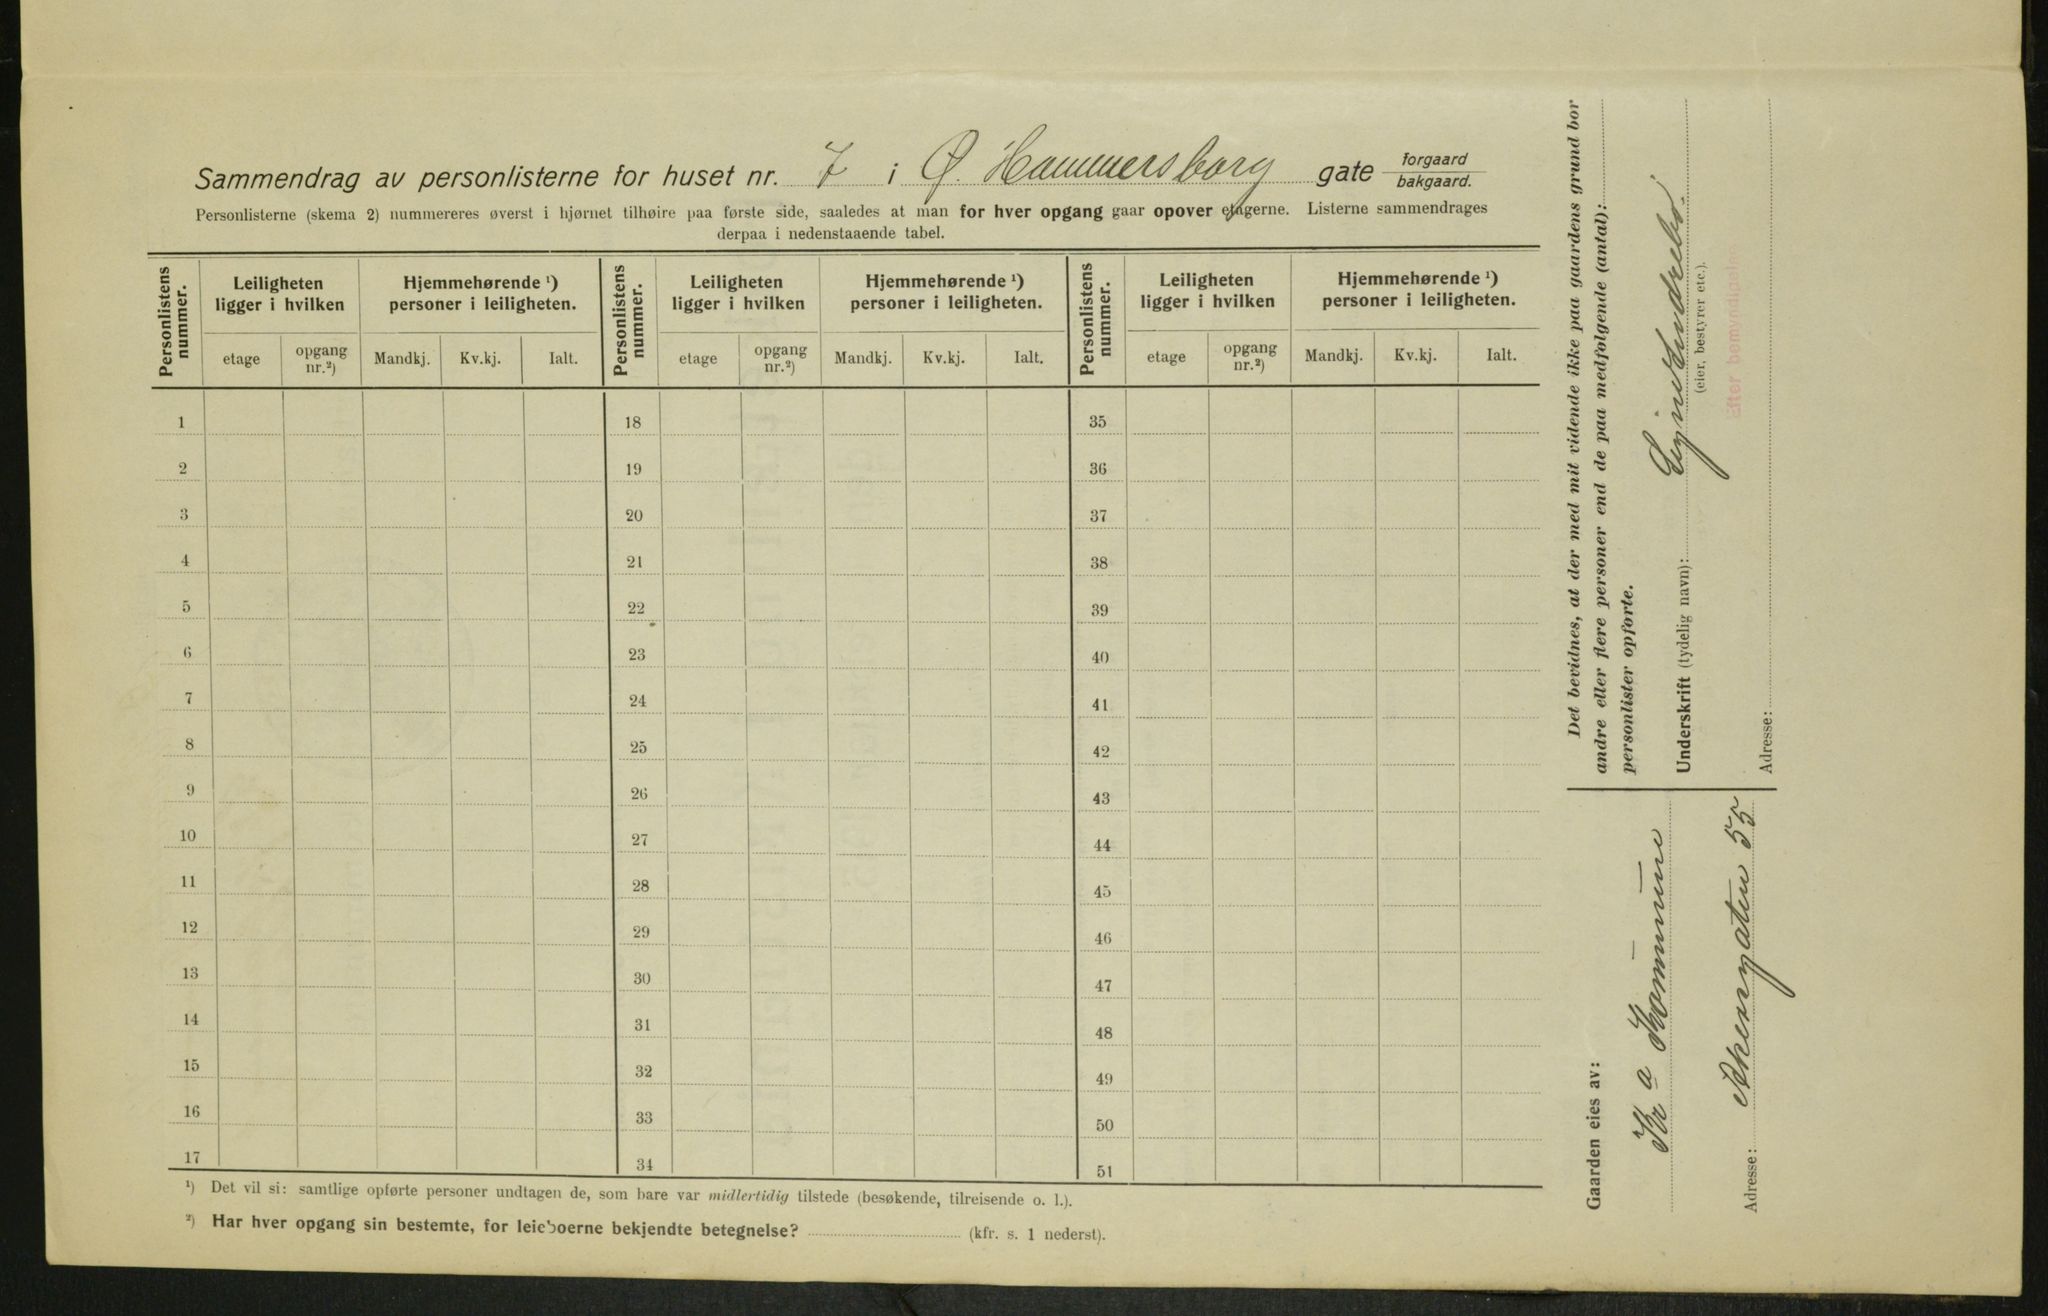 Sammendrag av personlisterne for huset nr. 7 i Ø. Hammersborg gate forgaard
bakgaard.
Personlisterne (skema 2) nummereres øverst i hjørnet tilhøire paa første side, saaledes at man for hver opgang gaar opover etagerne. Listerne sammendrages
derpaa i nedenstaaende tabel.
Personlistens nummer.
Leiligheten ligger i hvilken
Hjemmehørende ¹) personer i leiligheten.
etage
opgang nr.²)
Mandkj.
Kv.kj.
Ialt.
Personlistens nummer.
Leiligheten ligger i hvilken
Hjemmehørende ¹) personer i leiligheten.
etage
opgang nr.²)
Mandkj.
Kv.kj.
Ialt.
Personlistens nummer.
Leiligheten ligger i hvilken
Hjemmehørende ¹) personer i leiligheten.
etage
opgang nr.²)
Mandkj.
Kv.kj.
Ialt.
1 18 35
2 19 36
3 20 37
4 21 38
5 22 39
6 23 40
7 24 41
8 25 42
9 26 43
10 27 44
11 28 45
12 29 46
13 30 47
14 31 48
15 32 49
16 33 50
17 34 51
¹) Det vil si: samtlige opførte personer undtagen de, som bare var midlertidig tilstede (besøkende, tilreisende o. l.).
²) Har hver opgang sin bestemte, for leieboerne bekjendte betegnelse? (kfr. s. 1 nederst).
Det bevidnes, at der med mit vidende ikke paa gaardens grund bor
andre eller flere personer end de paa medfølgende (antal):
personlister opførte.
Underskrift (tydelig navn):
(eier, bestyrer etc.).
efter bemyndigelse
Adresse:
Gaarden eies av:
Kra Kommune
Adresse: Akersgaten 55